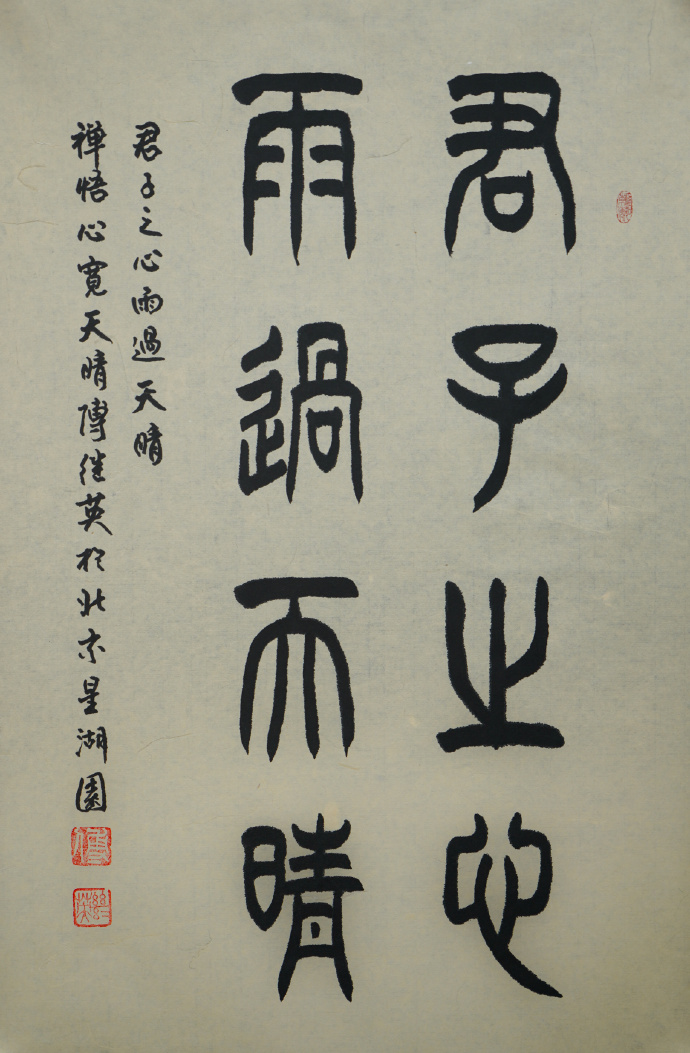 君子之心
雨過天晴
君子之心雨過天晴
禅悟心寬天晴傅继英於北京星湖園